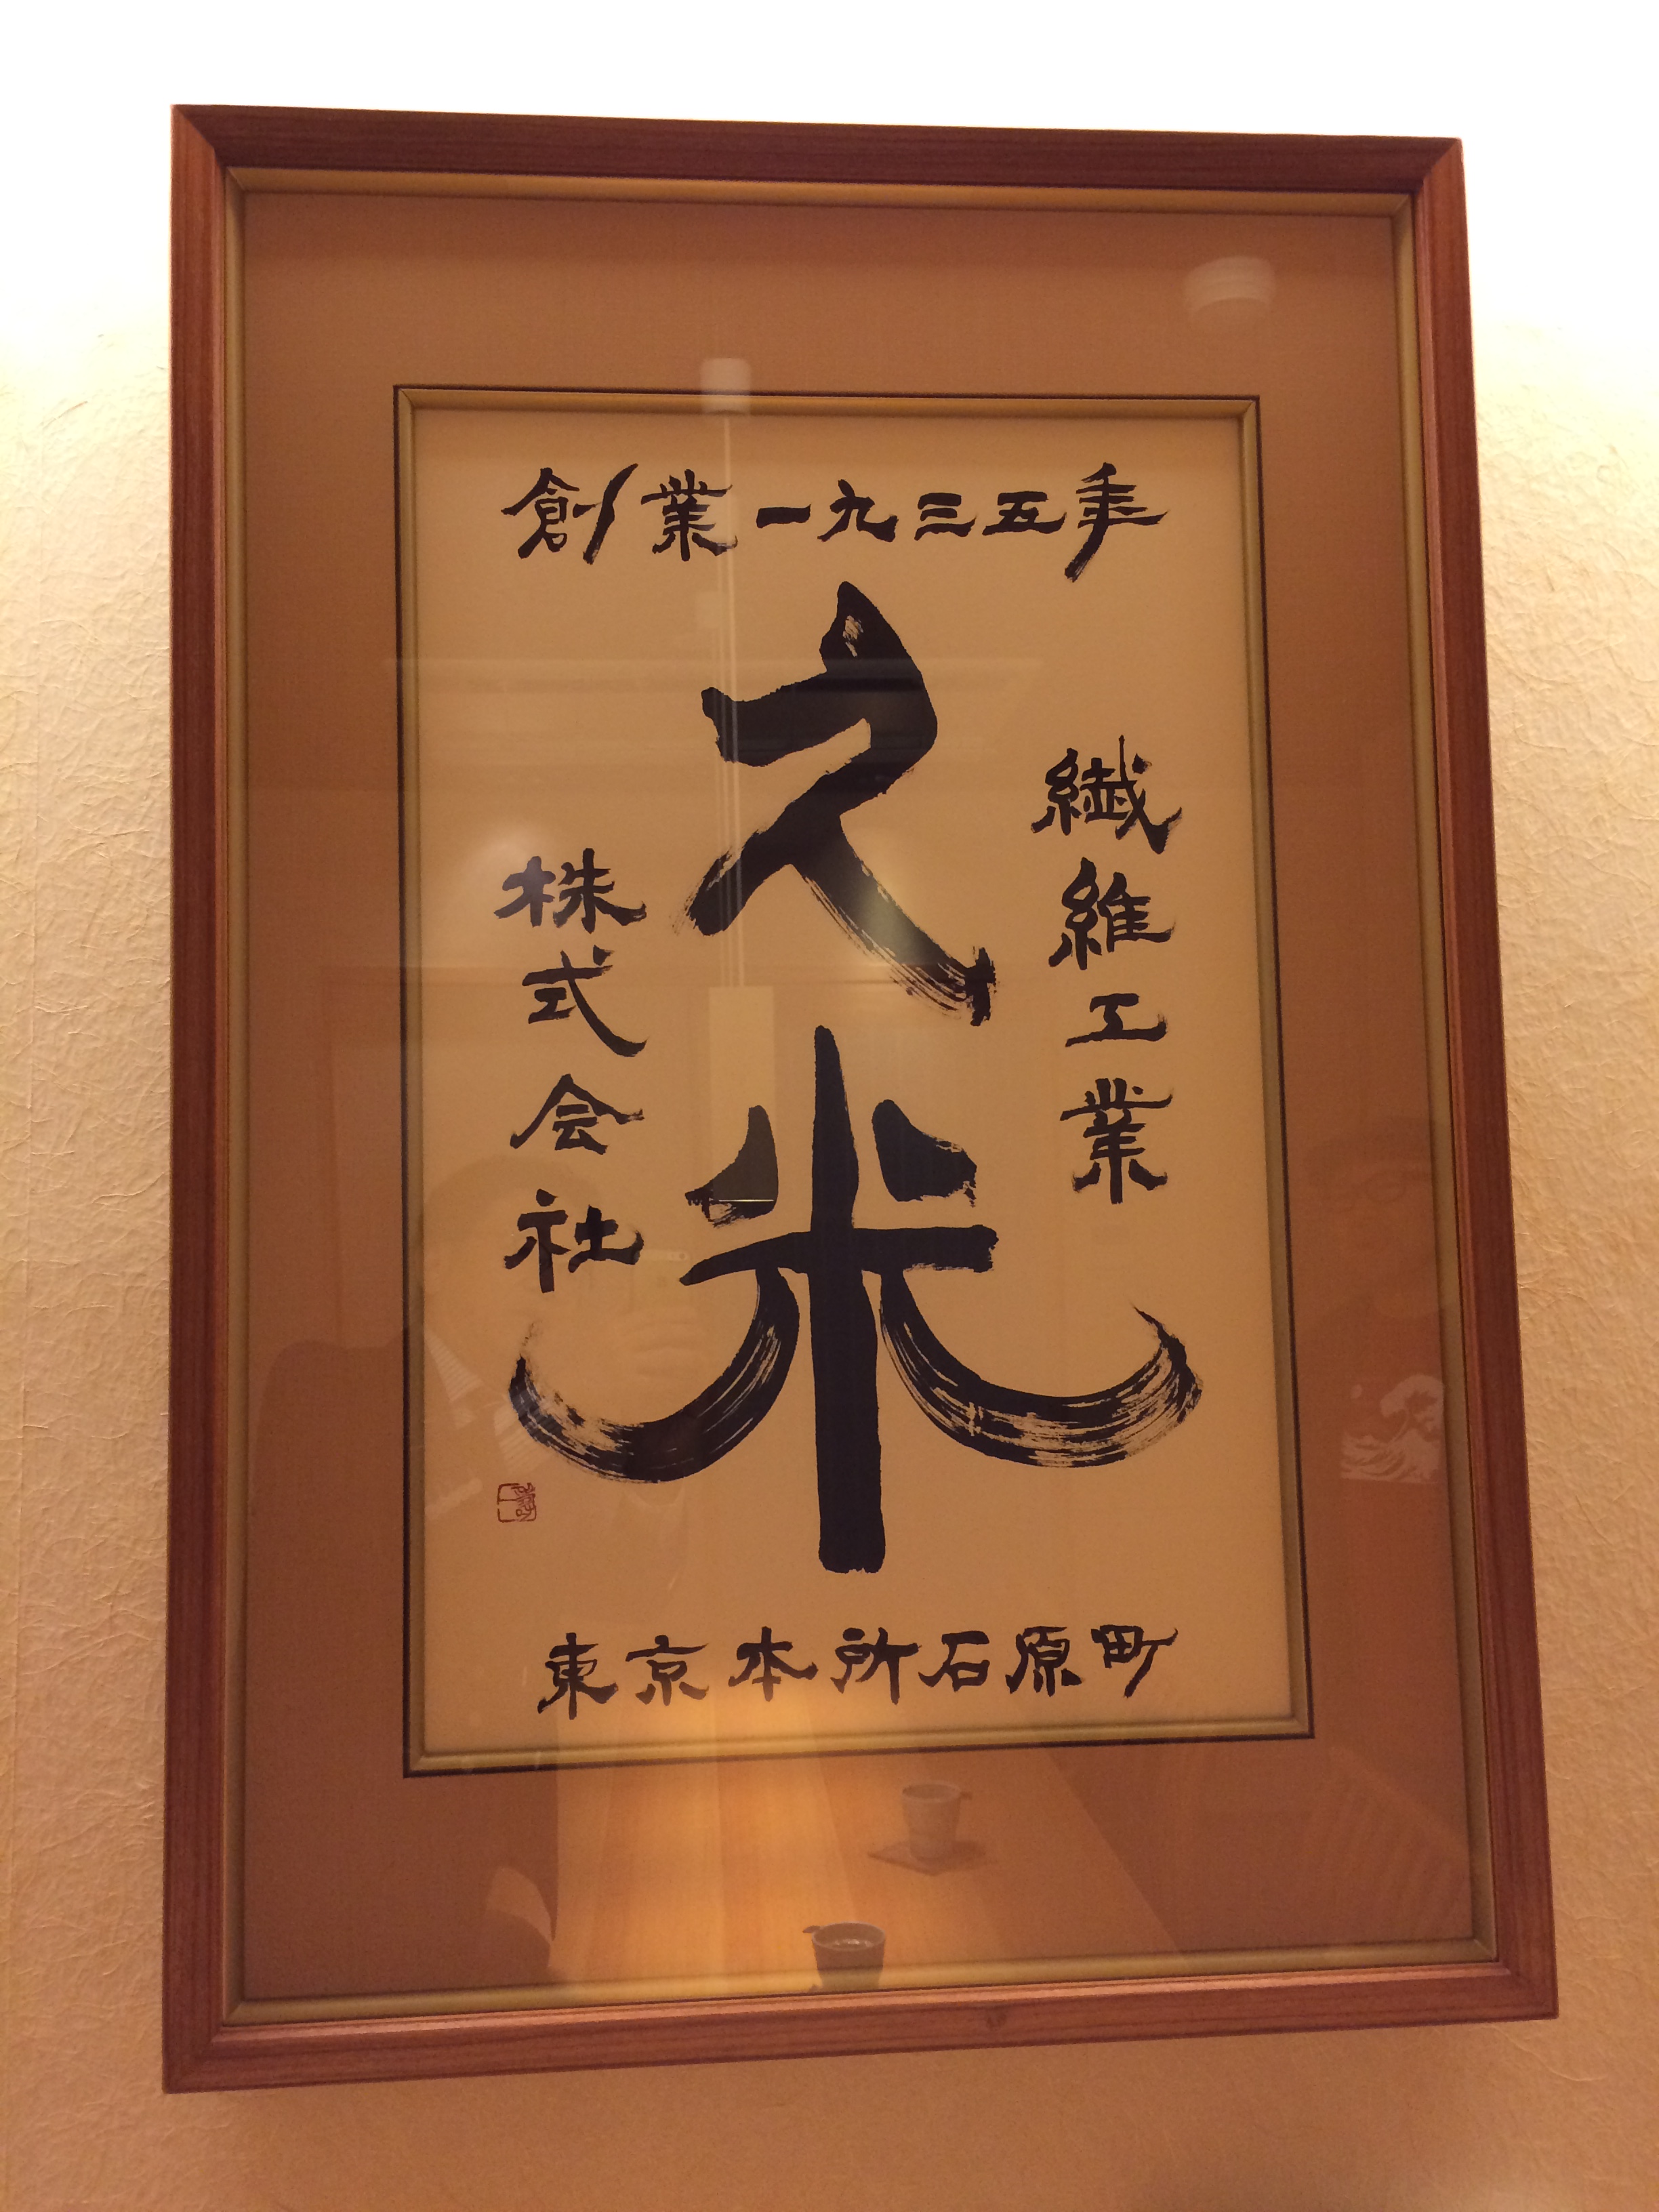 創業一九三五年
久米
繊維工業
株式会社
東京本所石原町